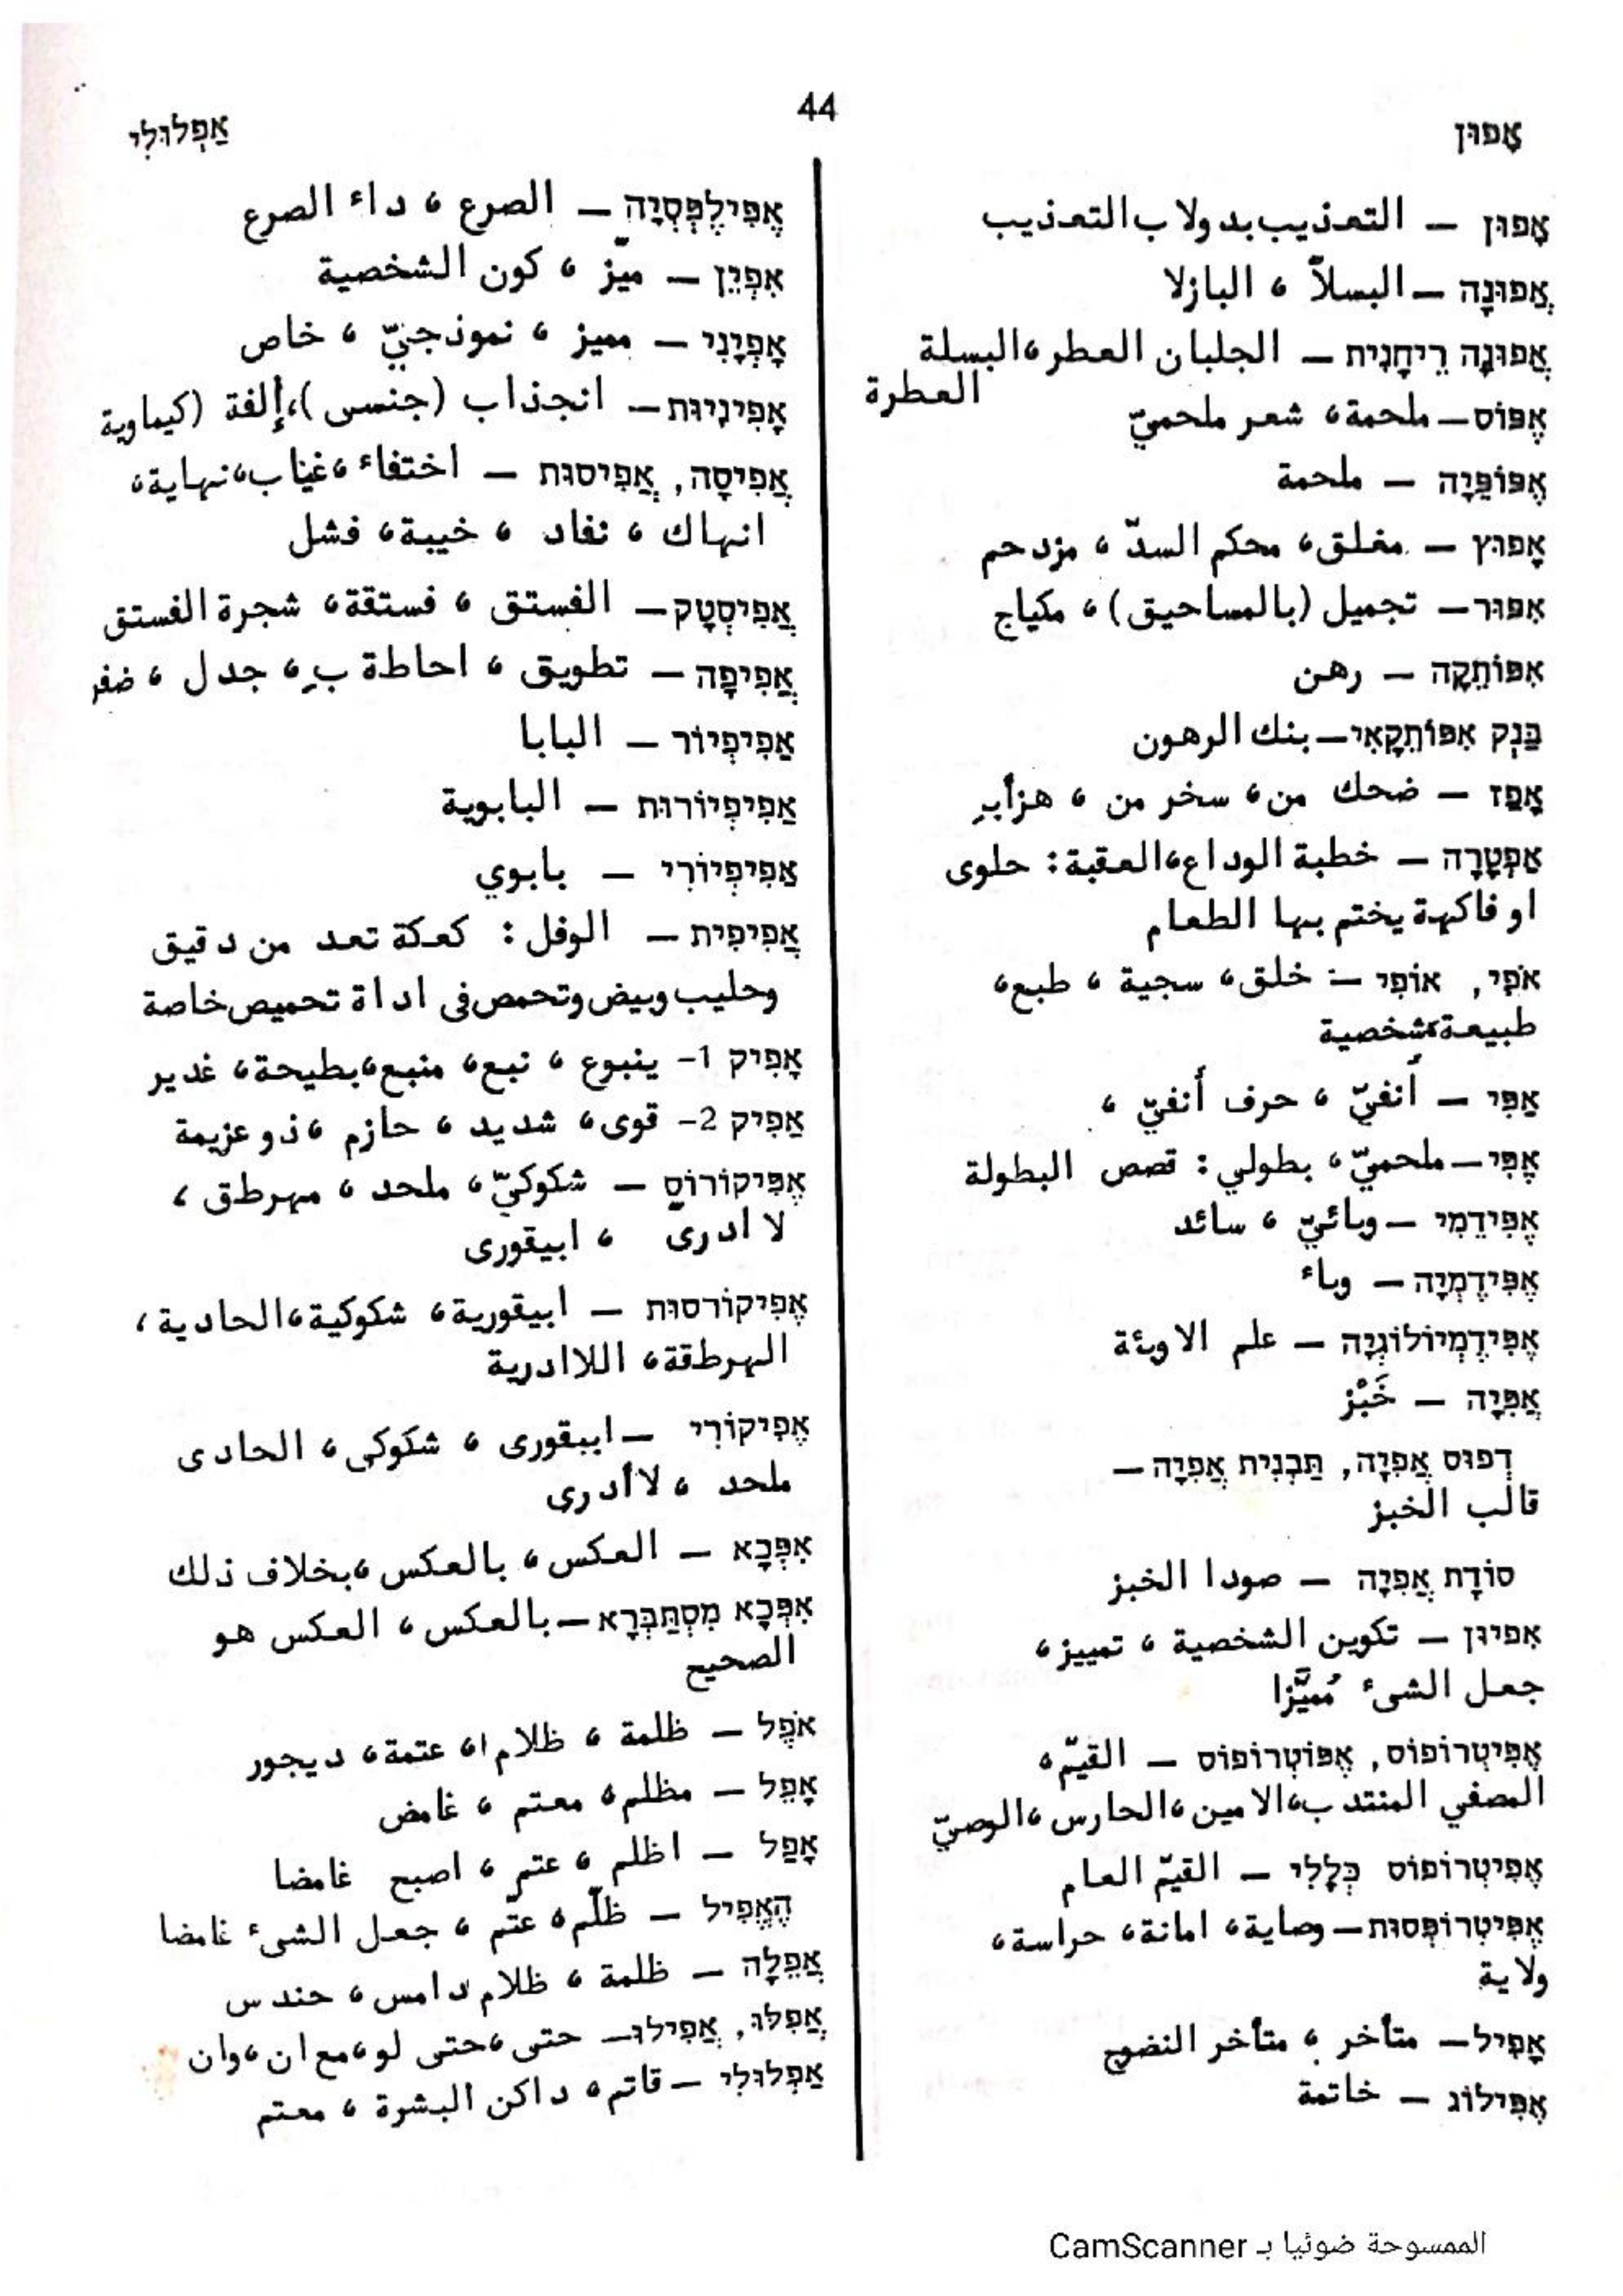 אָפוּן
44
אַפְלוּלִי
אָפוּן – التعذيب بدولاب التعذيب
אֲפוּנָה – البسلاّ ، البازلا
אֲפוּנָה רֵיחָנִית – الجلبان العطر ،البسلة
العطرة
אֶפּוֹס – ملحمة، شعر ملحميّ
אֶפּוֹפֵּיָה – ملحمة
אָפוּץ – مغلق، محكم السدّ ، مزدحم
אִפּוּר – تجميل (بالمساحيق) ، مكياج
אִפּוֹתֵקָה – رهن
בַּנְק אִפּוֹתֵקָאִי – بنك الرهون
אָפַז – ضحك من ، سخر من ، هزأبِ
אַפְטָרָה – خطبة الوداع،العقبة: حلوى
او فاكهة يختم بها الطعام
אֹפִי, אוֹפִי – خلق، سجية ، طبع،
طبيعة،شخصية
אַפִּי – أنفيّ ، حرف أنفيّ ،
אֶפִּי – ملحميّ، بطولي: قصص البطولة
אֶפִּידֵמִי – وبائيّ ، سائد
אֶפִּידֶמְיָה – وباء
אֶפִּידֶמְיוֹלוֹגְיָה – علم الاوبئة
אֲפִיָּה – خَبْز
דְּפוּס אֲפִיָּה, תַּבְנִית אֲפִיָּה –
قالب الخبز
סוֹדָת אֲפִיָּה – صودا الخبز
אִפְיוּן – تكوين الشخصية ، تمييز،
جعل الشىء مُمَيَّزا
אֶפִּיטְרוֹפּוֹס, אֶפּוֹטְרוֹפּוֹס – القيّم،
المصفي المنتدب،الامين ،الحارس ،الوصيّ
אֶפִּיטְרוֹפּוֹס כְּלָלִי – القيّم العام
אֶפִּיטְרוֹפְּסוּת – وصاية، امانة، حراسة،
ولاية
אָפִיל – متأخر ، متأخر النضوج
אֶפִּילוֹג – خاتمة
אֶפִּילֶפְּסְיָה – الصرع ، داء الصرع
אִפְיֵן – ميّز ، كون الشخصية
אָפְיָנִי – مميز ، نموذجيّ ، خاص
אָפִינִיוּת – انجذاب (جنسى)،إلفة (كيماوية
אֲפִיסָה, אֲפִיסוּת – اختفاء ،غياب،نهاية،
انهاك ، نفاد ، خيبة، فشل
אֲפִיסְטָק – الفستق ، فستقة، شجرة الفستق
אֲפִיפָה – تطويق ، احاطة بِ، جدل ، ضفر
אַפִּיפְיוֹר – البابا
אַפִּיפְיוֹרוּת – البابوية
אַפִּיפְיוֹרִי – بابوي
אֲפִיפִית – الوفل: كعكة تعد من دقيق
وحليب وبيض وتحمص فى اداة تحميص خاصة
אָפִיק 1- ينبوع ، نبع، منبع،بطيحة، غدير
אַפִּיק 2- قوى، شديد ، حازم ،ذو عزيمة
אֶפִּיקוֹרוֹס – شكوكيّ، ملحد ، مهرطق ،
لا ادرىّ ، ابيقورى
אֶפִּיקוֹרסוּת – ابيقورية، شكوكية،الحادية،
الهرطقة، اللاادرية
אֶפִּיקוֹרִי – ابيقورى ، شكوكى، الحادى
ملحد ، لاأدرى
אִפְּכָא – العكس، بالعكس ،بخلاف ذلك
אִפְּכָא מִסְתַּבְּרָא – بالعكس، العكس هو
الصحيح
אֹפֶל – ظلمة ، ظلام،ا عتمة، ديجور
אָפֵל – مظلم، معتم ، غامض
אָפַל – اظلم ، عتم ، اصبح غامضا
הֶאֱפִיל – ظلّم، عتّم ، جعل الشىء غامضا
אֲפֵלָה – ظلمة ، ظلام دامس ، حندس
אֲפִלּוּ, אֲפִילוּ – حتى ،حتى لو،مع ان ،وان
אַפְלוּלִי – قاتم، داكن البشرة ، معتم
الممسوحة ضوئيا بـ CamScanner